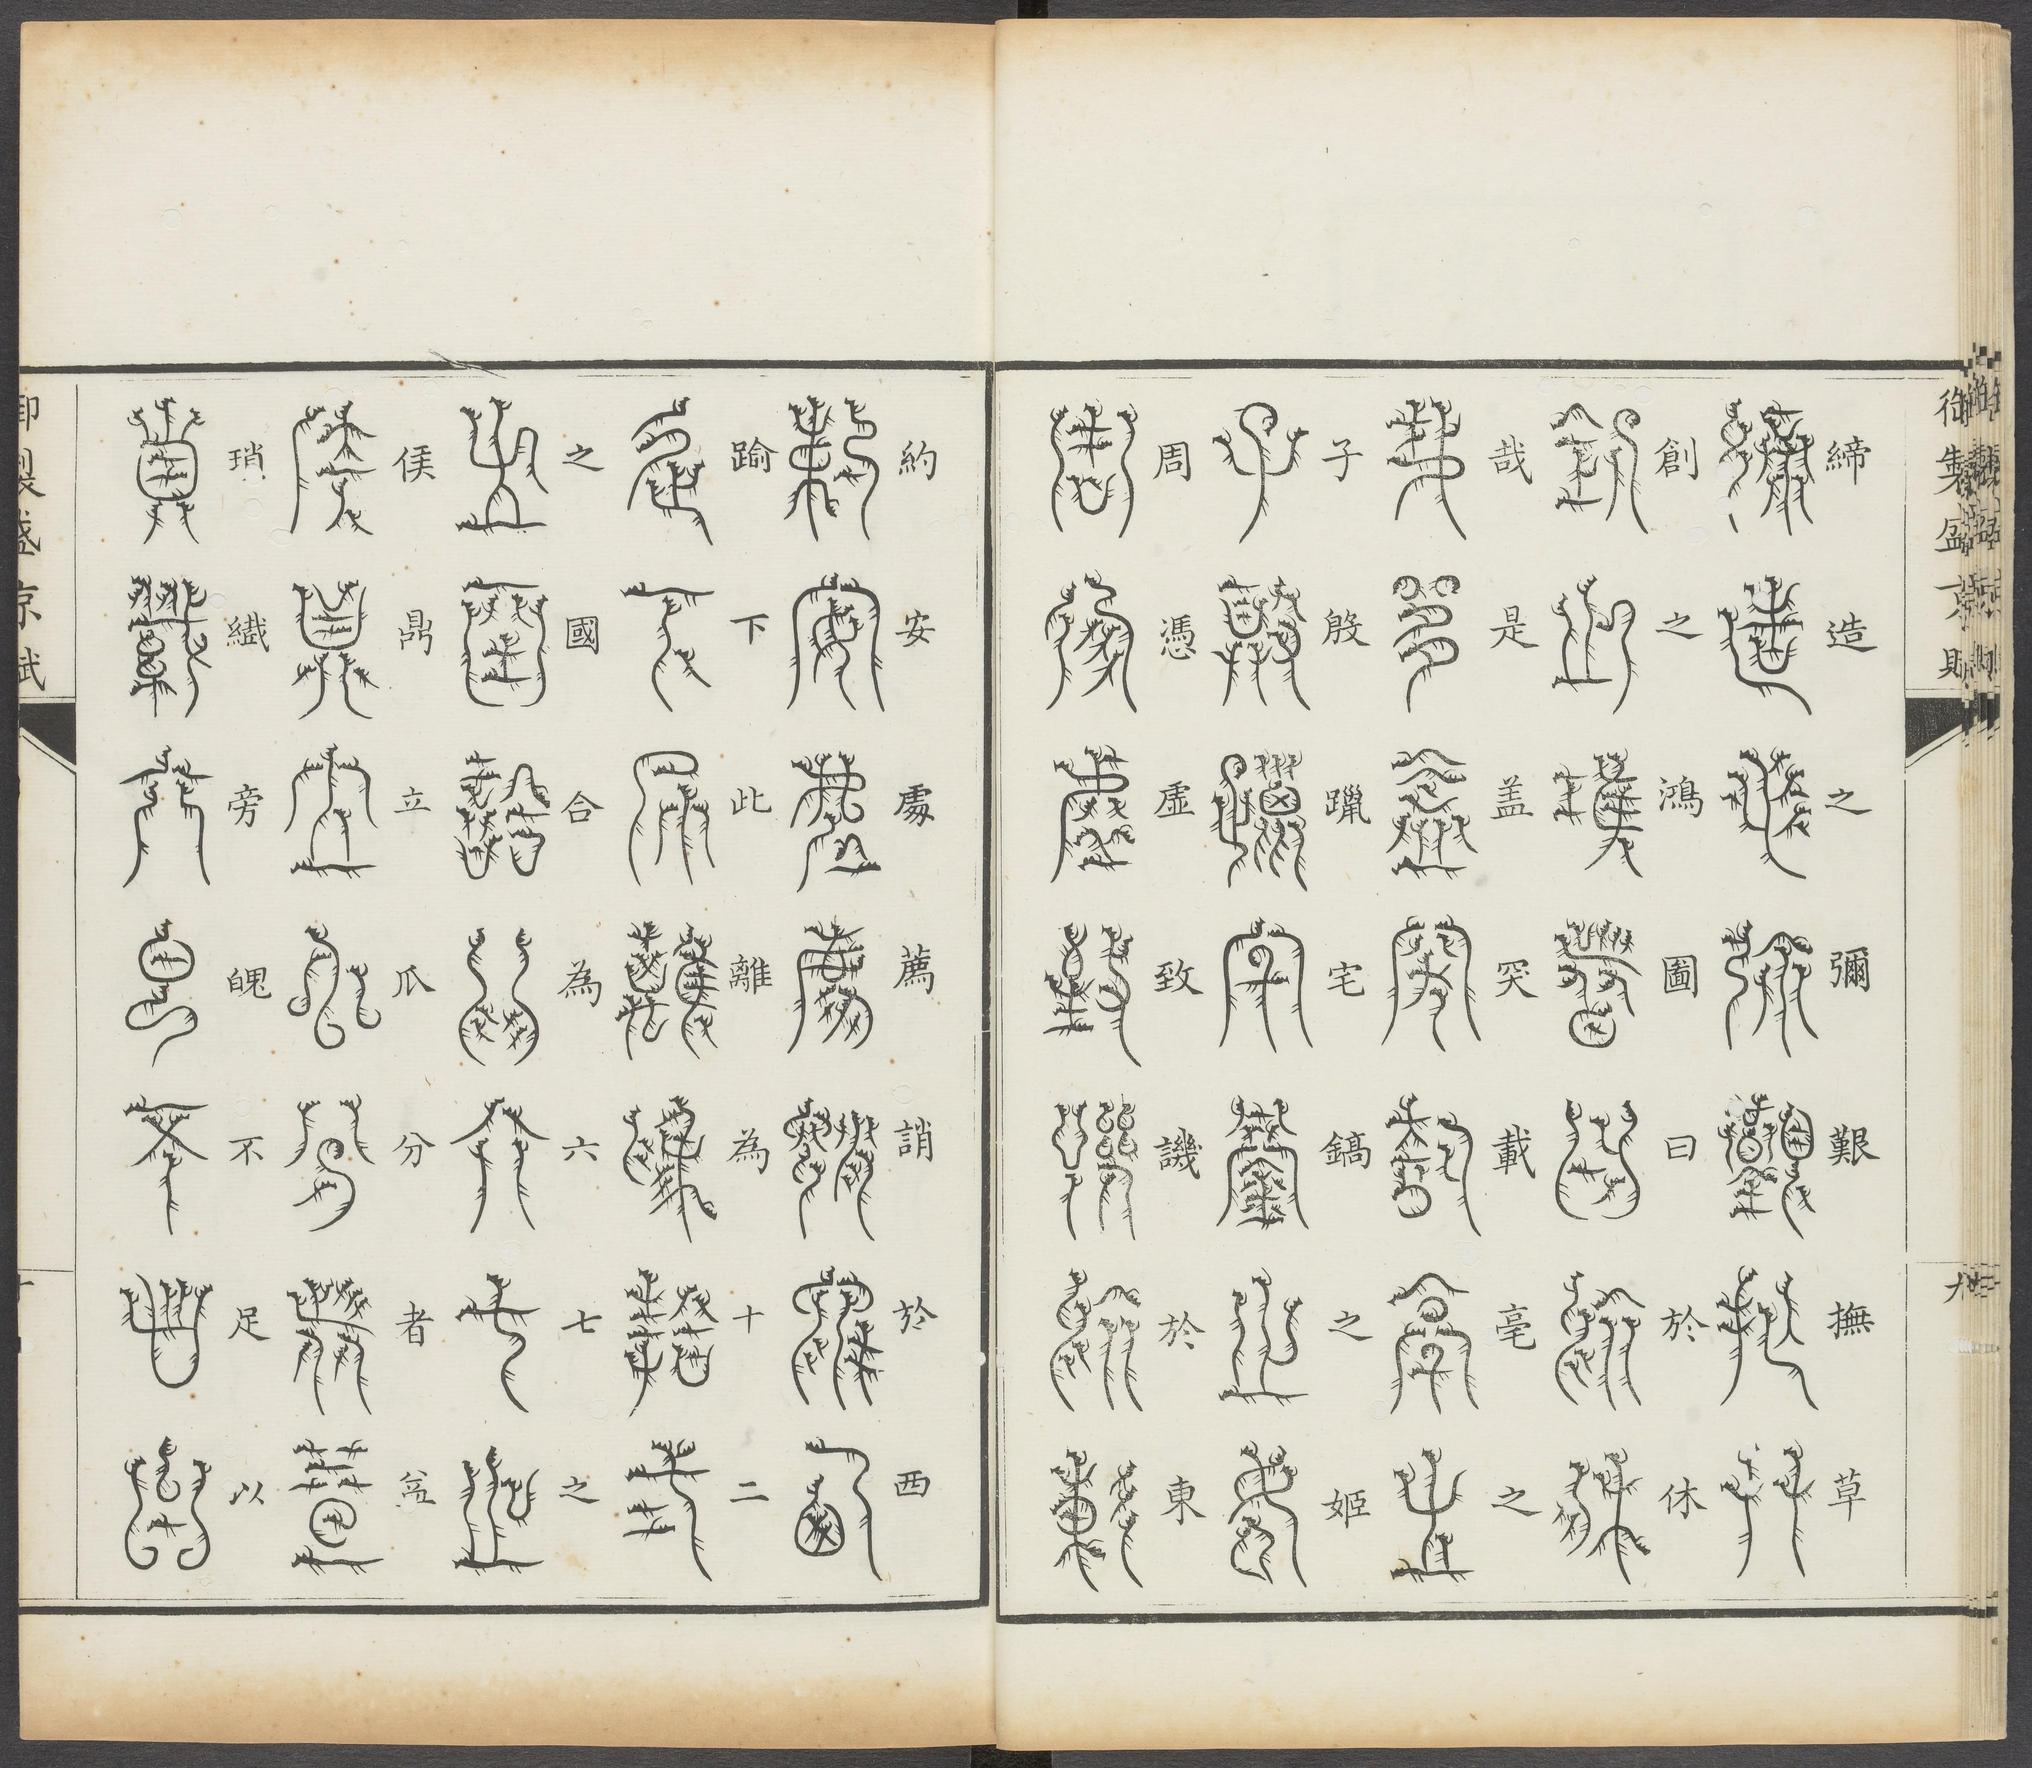 御製盛京賦
九
締造之彌艱撫草
創之鴻圖曰於休
哉是盖突載亳之
子殷躐宅鎬之姬
周憑虛致譏於東
約安處薦誚於西
踰下此離為十二
之國合為六七之
侯鼎立瓜分者盆
瑣纎旁魄不足以
御製盛京賦